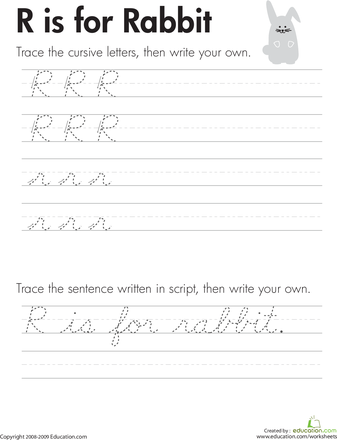 R is for Rabbit
Trace the cursive letters, then write your own.
R R R
R R R
r r r
r r r
Trace the sentence written in script, then write your own.
R is for rabbit.
Created by :
education.com
Copyright 2008-2009 Education.com
www.education.com/worksheets